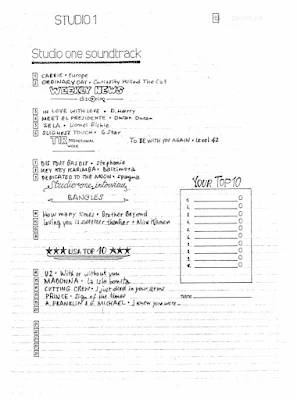 STUDIO 1
Studio one soundtrack
CARRIE • Europe
ORDINARY DAY • Curiosity Killed The Cat
WEEKLY NEWS
IN LOVE WITH LOVE • D. Harry
MEET EL PRESIDENTE • Duran Duran
SELA • Lionel Richie
SLIGHEST TOUCH • 5 Star
TO BE WITH YOU AGAIN • Level 42
stephanie
HEY KEY KARIMBA • Baltimora
DEDICATED TO THE MOON • spagna
Studio one interview
BANGLES
YOUR TOP 10
How many times • Brother Beyond
loving you is sweeter than ever • Nick Kamen
★★★ USA TOP 10 ★★★
U2 • With or without you
MADONNA • La isla bonita
CUTTING CREW • I just died in your arms
PRINCE • Sign of the times
A. FRANKLIN & G. MICHAEL • I knew you were
name